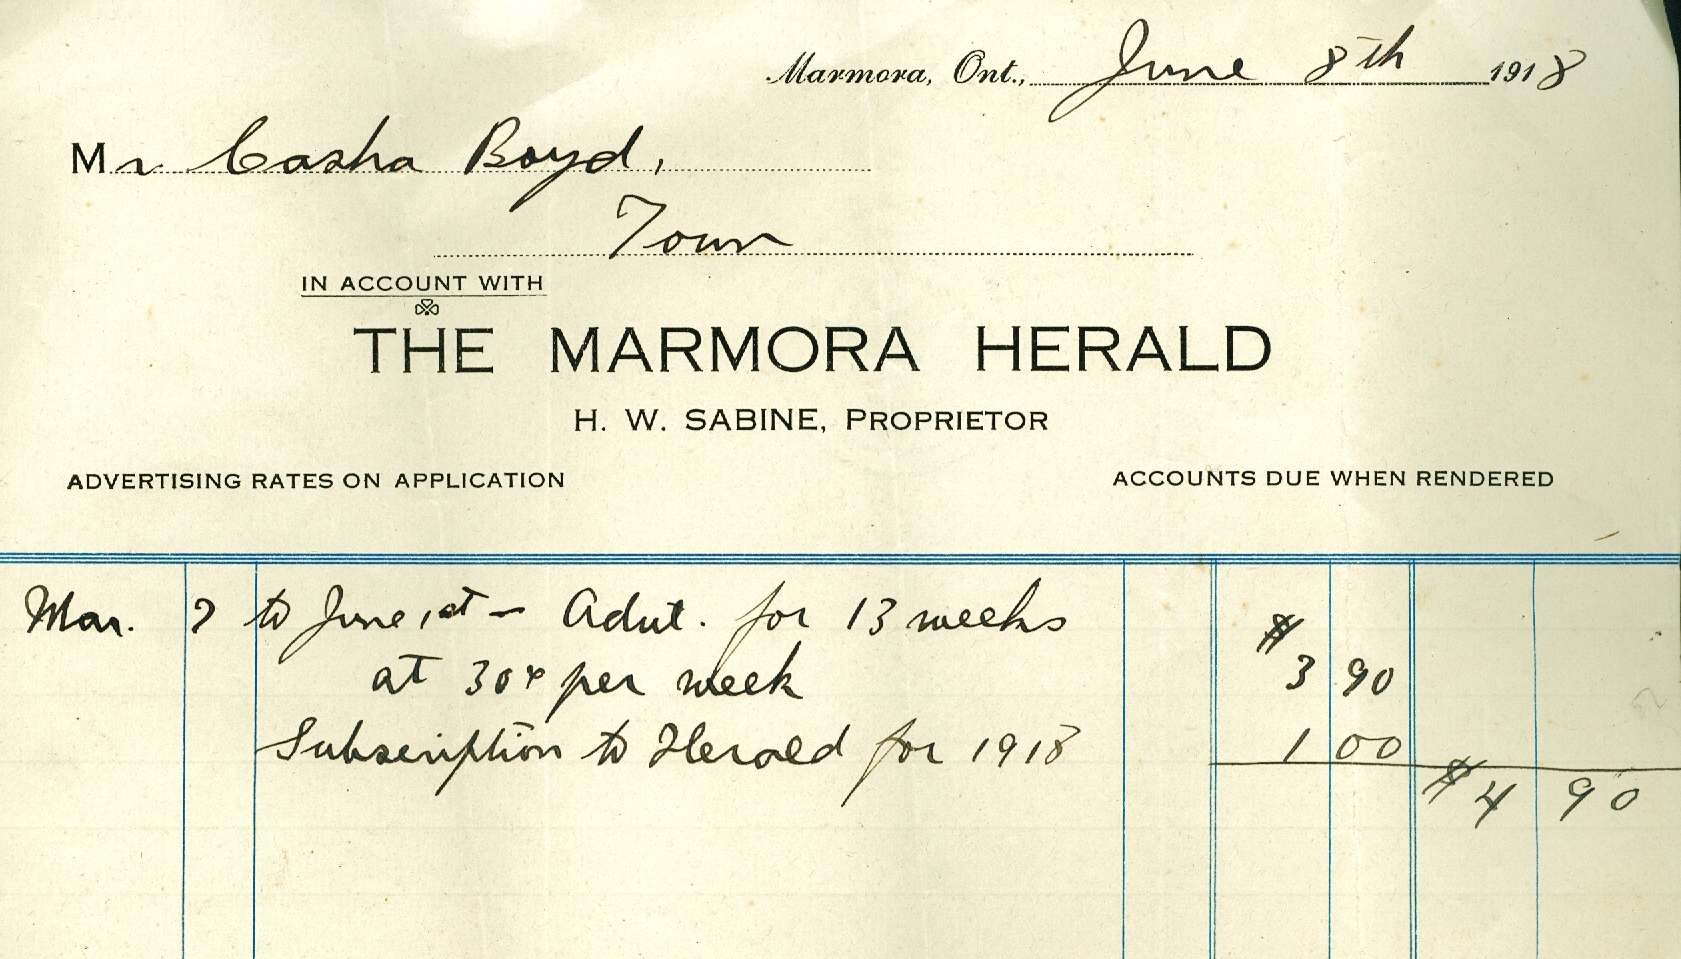 Marmora, Ont., June 8th 1918
Mr Casha Boyd,
Town
IN ACCOUNT WITH
THE MARMORA HERALD
H. W. SABINE, PROPRIETOR
ADVERTISING RATES ON APPLICATION ACCOUNTS DUE WHEN RENDERED
Mar. 7 to June 1st – Advt. for 13 weeks
at 30¢ per week $3 90
Subscription to Herald for 1918 1 00
$4 90